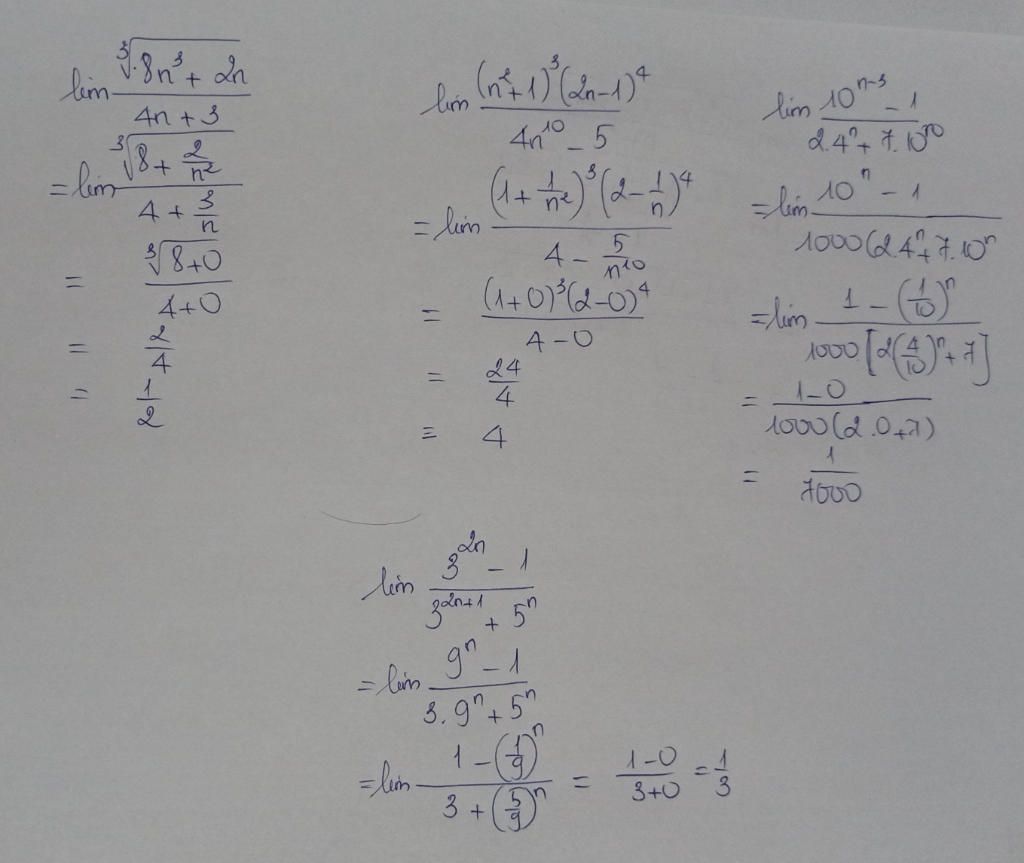 lim ∛(8n³ + 2n) / (4n + 3)
= lim ∛(8 + 2/n²) / (4 + 3/n)
= ∛(8+0) / (4+0)
= 2/4
= 1/2
lim (n²+1)³(2n-1)⁴ / (4n¹⁰ - 5)
= lim (1 + 1/n²)³(2 - 1/n)⁴ / (4 - 5/n¹⁰)
= (1+0)³(2-0)⁴ / (4-0)
= 24/4
= 4
lim (10ⁿ⁻³ - 1) / (2.4ⁿ + 7.10ⁿ)
= lim (10ⁿ - 1) / 1000(2.4ⁿ + 7.10ⁿ
= lim (1 - (1/10)ⁿ) / 1000[2(4/10)ⁿ + 7]
= (1-0) / 1000(2.0+7)
= 1/7000
lim (3²ⁿ - 1) / (3²ⁿ⁺¹ + 5ⁿ)
= lim (9ⁿ - 1) / (3.9ⁿ + 5ⁿ)
= lim (1 - (1/9)ⁿ) / (3 + (5/9)ⁿ) = (1-0) / (3+0) = 1/3